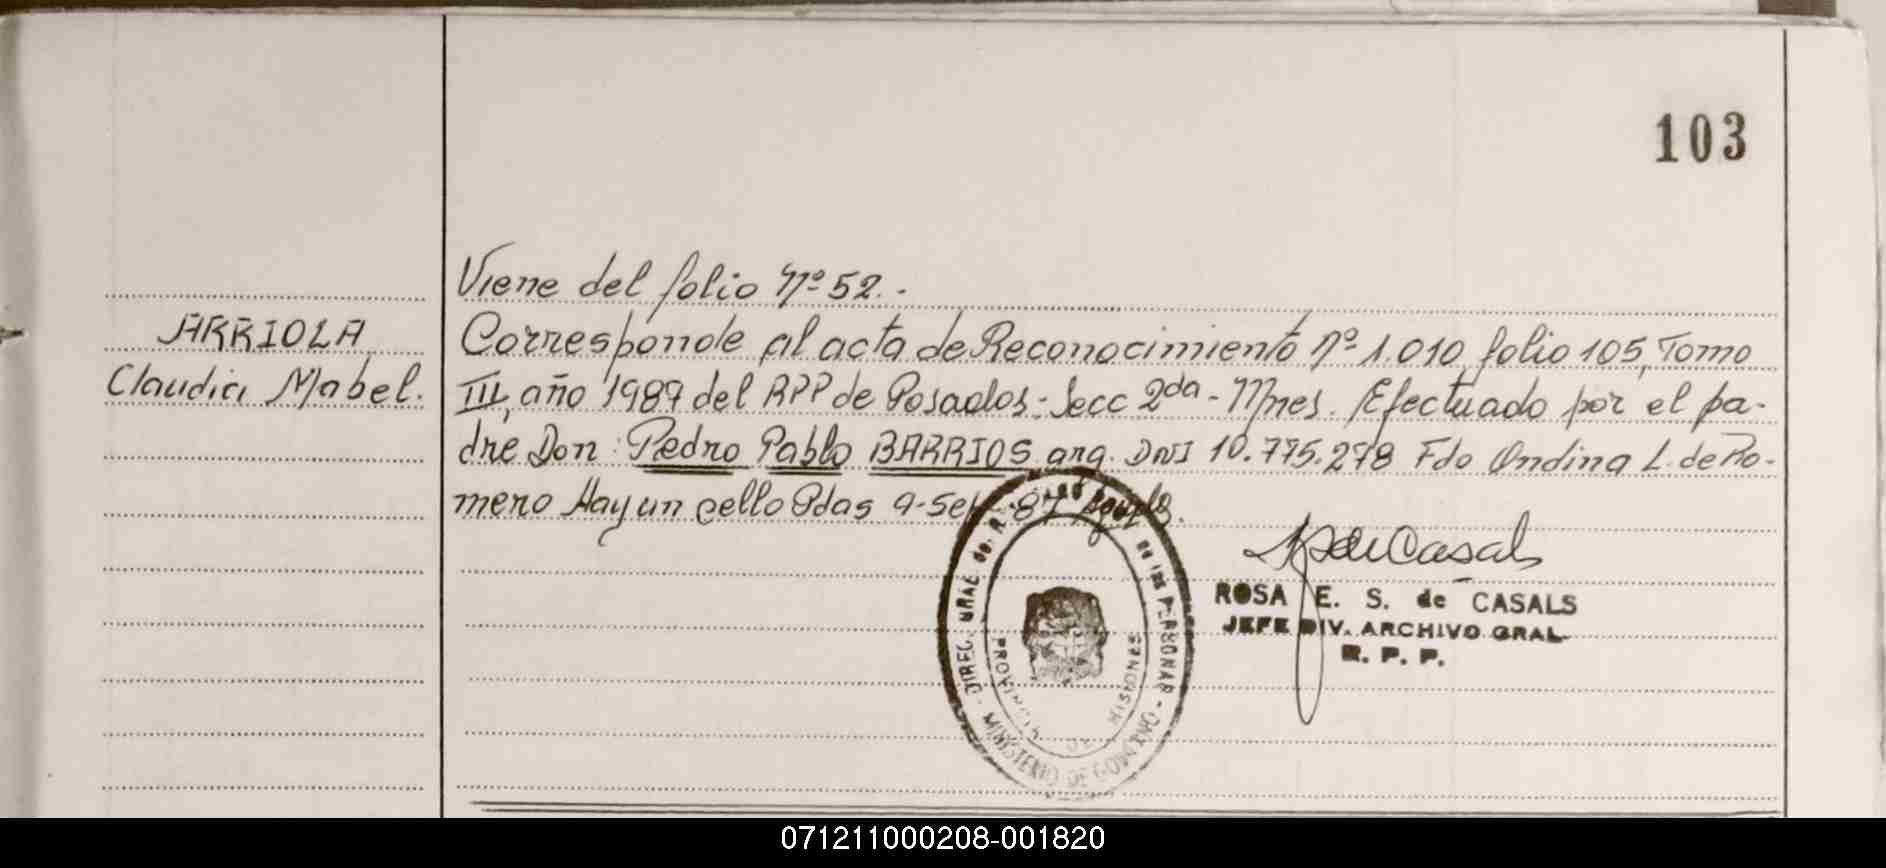 103
Viene del folio Nº 52.-
ARRIOLA
Claudia Mabel.
Corresponde al acta de Reconocimiento nº 1.010, folio 105, Tomo
III, año 1987 del RPP de Posadas - Secc 2da - Mnes. Efectuado por el pa-
dre Don: Pedro Pablo BARRIOS arg. DNI 10.775.278 Fdo Ondina L. de Ro-
mero Hay un sello Pdas 9-Set-87
ROSA E. S. de CASALS
JEFE DIV. ARCHIVO GRAL
R. P. P.
DIREC. GRAL de las PERSONAS - MINISTERIO DE GOBIERNO -
PROVINCIA DE MISIONES
071211000208-001820